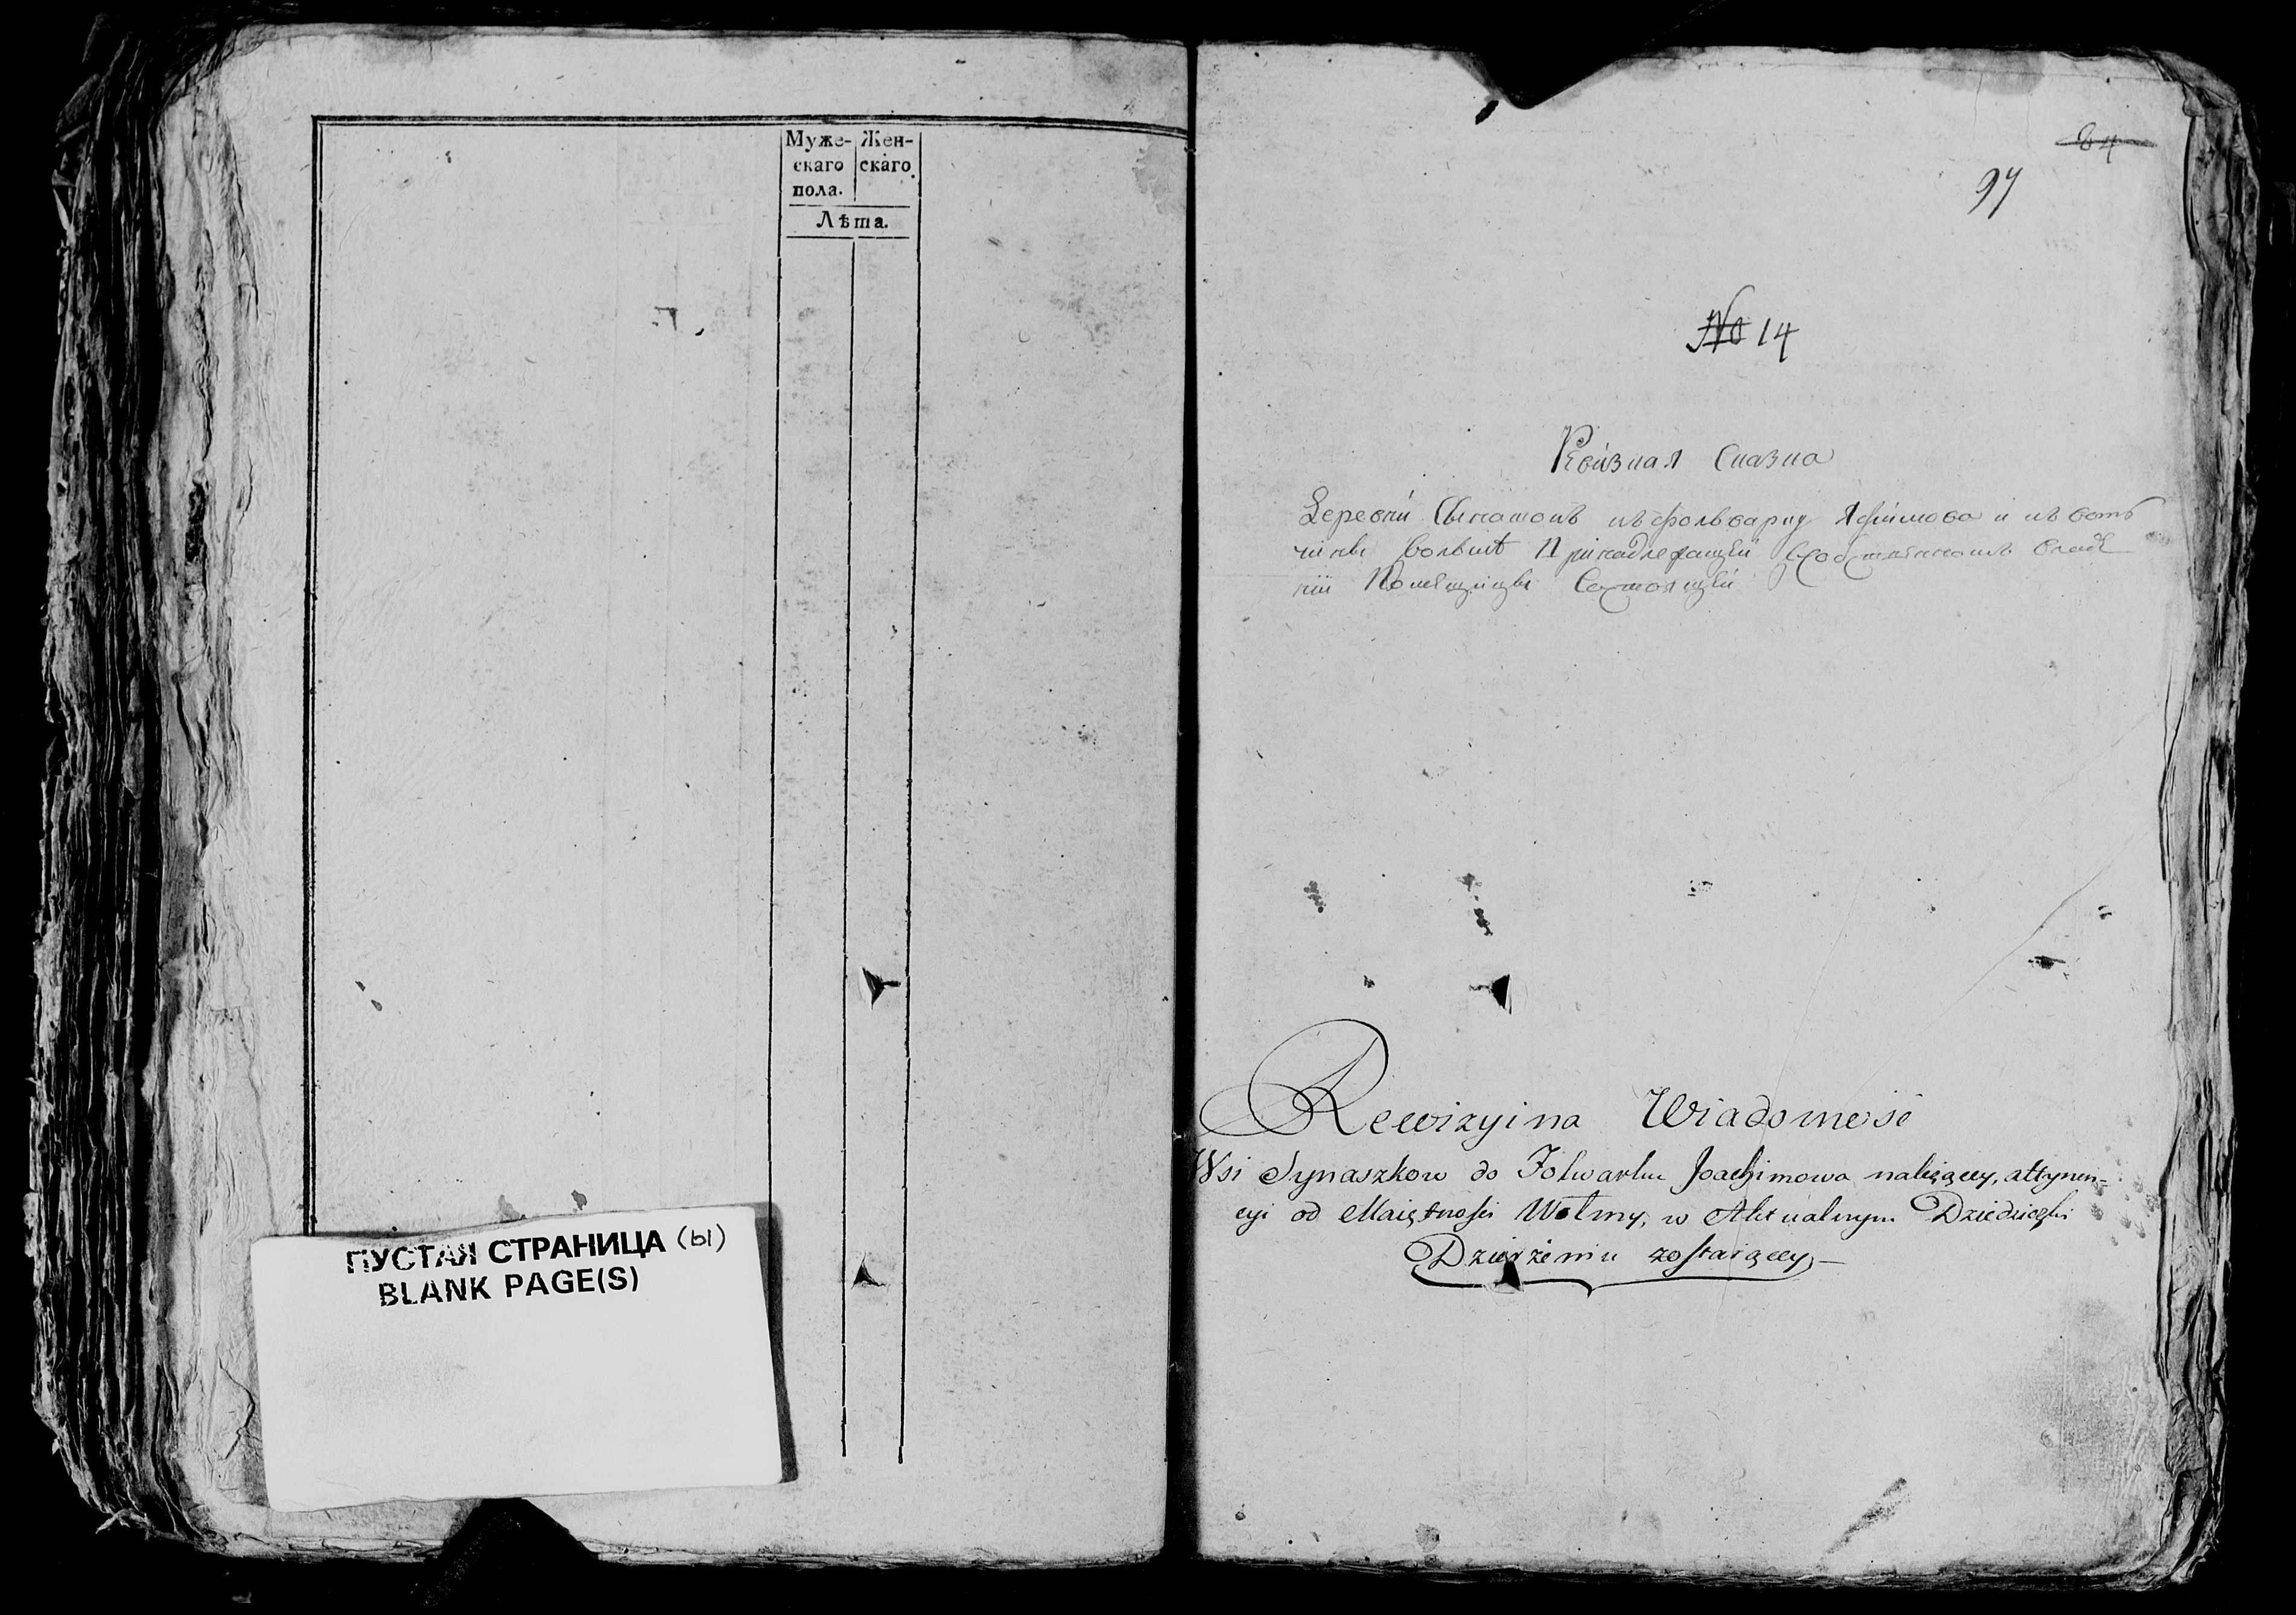 Муже-
скаго
пола.
Жен-
скаго.
Лѣта.
ПУСТАЯ СТРАНИЦА (ы)
BLANK PAGE(S)
84
97
№ 14
Ревизная Сказка
Деревни Сынашовъ къ фольварку и къ вотъ
чинѣ Принадлежащей владѣ
нїи Помѣщицы Состоящей
Rewizyina Wiadomość
Wsi Synaszkow do Folwarku Joachimowa należący, attynen-
cyi od Maiętności Wołmy, w Aktualnym Dziedziczki
Dzierżeniu zostaiący,—